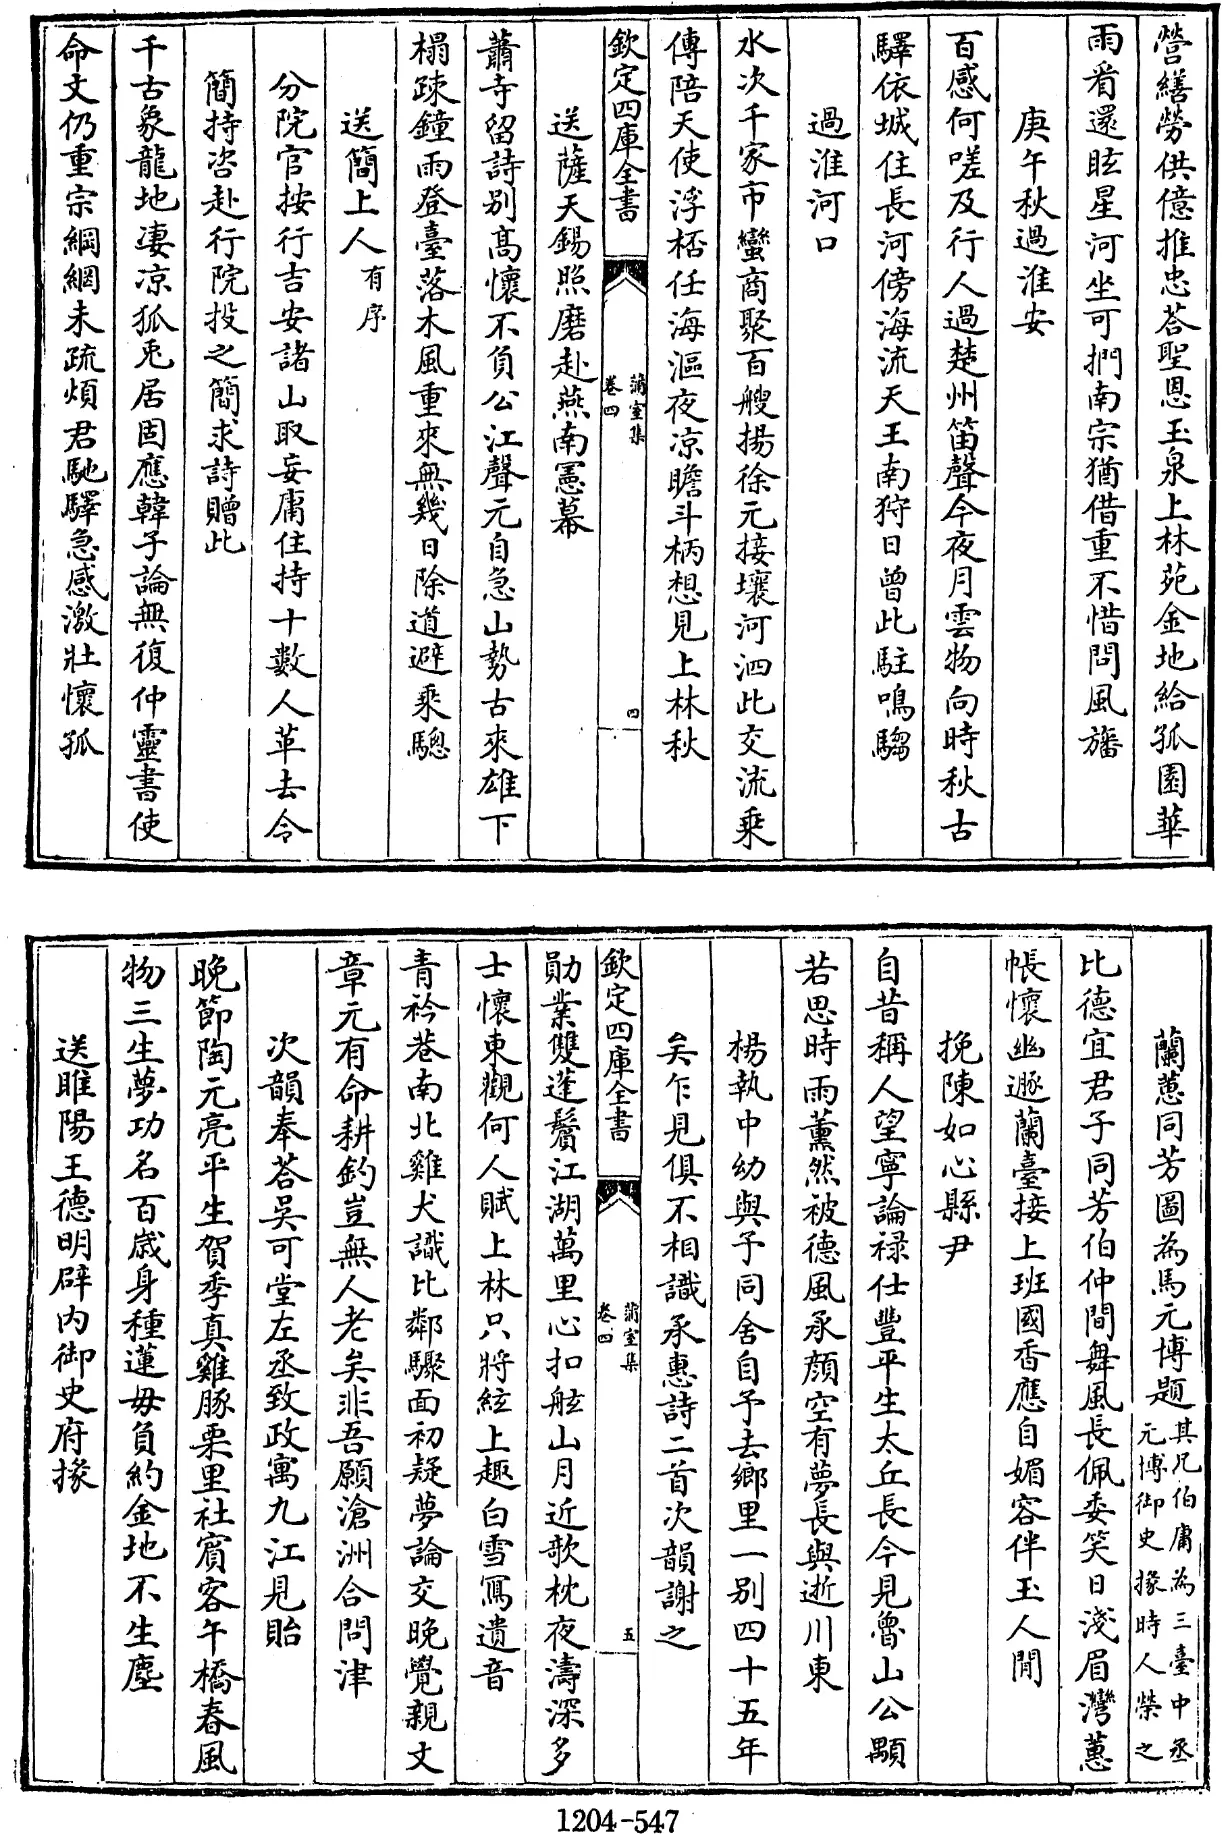 營繕勞供億推忠荅聖恩玉泉上林苑金地給孤園華
雨看還眩星河坐可捫南宗猶借重不惜問風旛
庚午秋過淮安
百感何嗟及行人過楚州笛聲今夜月雲物向時秋古
驛依城住長河傍海流天王南狩日曾此駐鳴騶
過淮河口
水次千家市蠻商聚百艘揚徐元接壤河泗此交流乗
傳陪天使浮桮任海漚夜凉瞻斗柄想見上林秋
欽定四庫全書
蒲室集
卷四
四
送薩天錫照磨赴燕南憲幕
蕭寺留詩别髙懷不負公江聲元自急山勢古來雄下
榻疎鐘雨登臺落木風重來無幾日除道避乗驄
送簡上人有序
分院官按行吉安諸山取妄庸住持十數人革去令
簡持咨赴行院投之簡求詩贈此
千古象龍地凄凉狐兎居固應韓子論無復仲靈書使
命文仍重宗綱網未疏煩君馳驛急感激壯懷孤
蘭蕙同芳圖為馬元博題其兄伯庸為三臺中丞
元博御史掾時人榮之
比德宜君子同芳伯仲間舞風長佩委笑日淺眉灣蕙
帳懷幽遯蘭臺接上班國香應自媚容伴玉人閒
挽陳如心縣尹
自昔稱人望寧論禄仕豐平生太丘長今見魯山公顒
若思時雨薰然被德風承顔空有夢長與逝川東
楊執中幼與予同舍自予去鄉里一别四十五年
矣乍見俱不相識承惠詩二首次韻謝之
欽定四庫全書
蒲室集
卷四
五
勛業雙蓬鬢江湖萬里心扣舷山月近歌枕夜濤深多
士懷東觀何人賦上林只將絃上趣白雪寫遺音
青衿巷南北雞犬識比鄰驟面初疑夢論交晚覺親文
章元有命耕釣豈無人老矣非吾願滄洲合問津
次韻奉荅吳可堂左丞致政寓九江見貽
晚節陶元亮平生賀季真雞豚栗里社賓客午橋春風
物三生夢功名百歳身種蓮毋負約金地不生塵
送睢陽王德明辟内御史府掾
1204-547